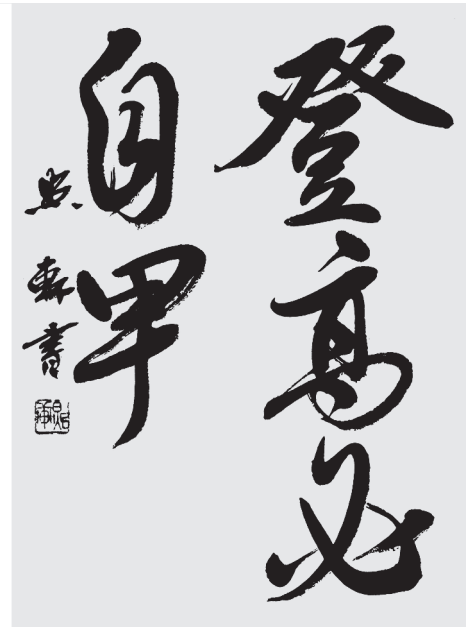 登高必
自卑
軒書